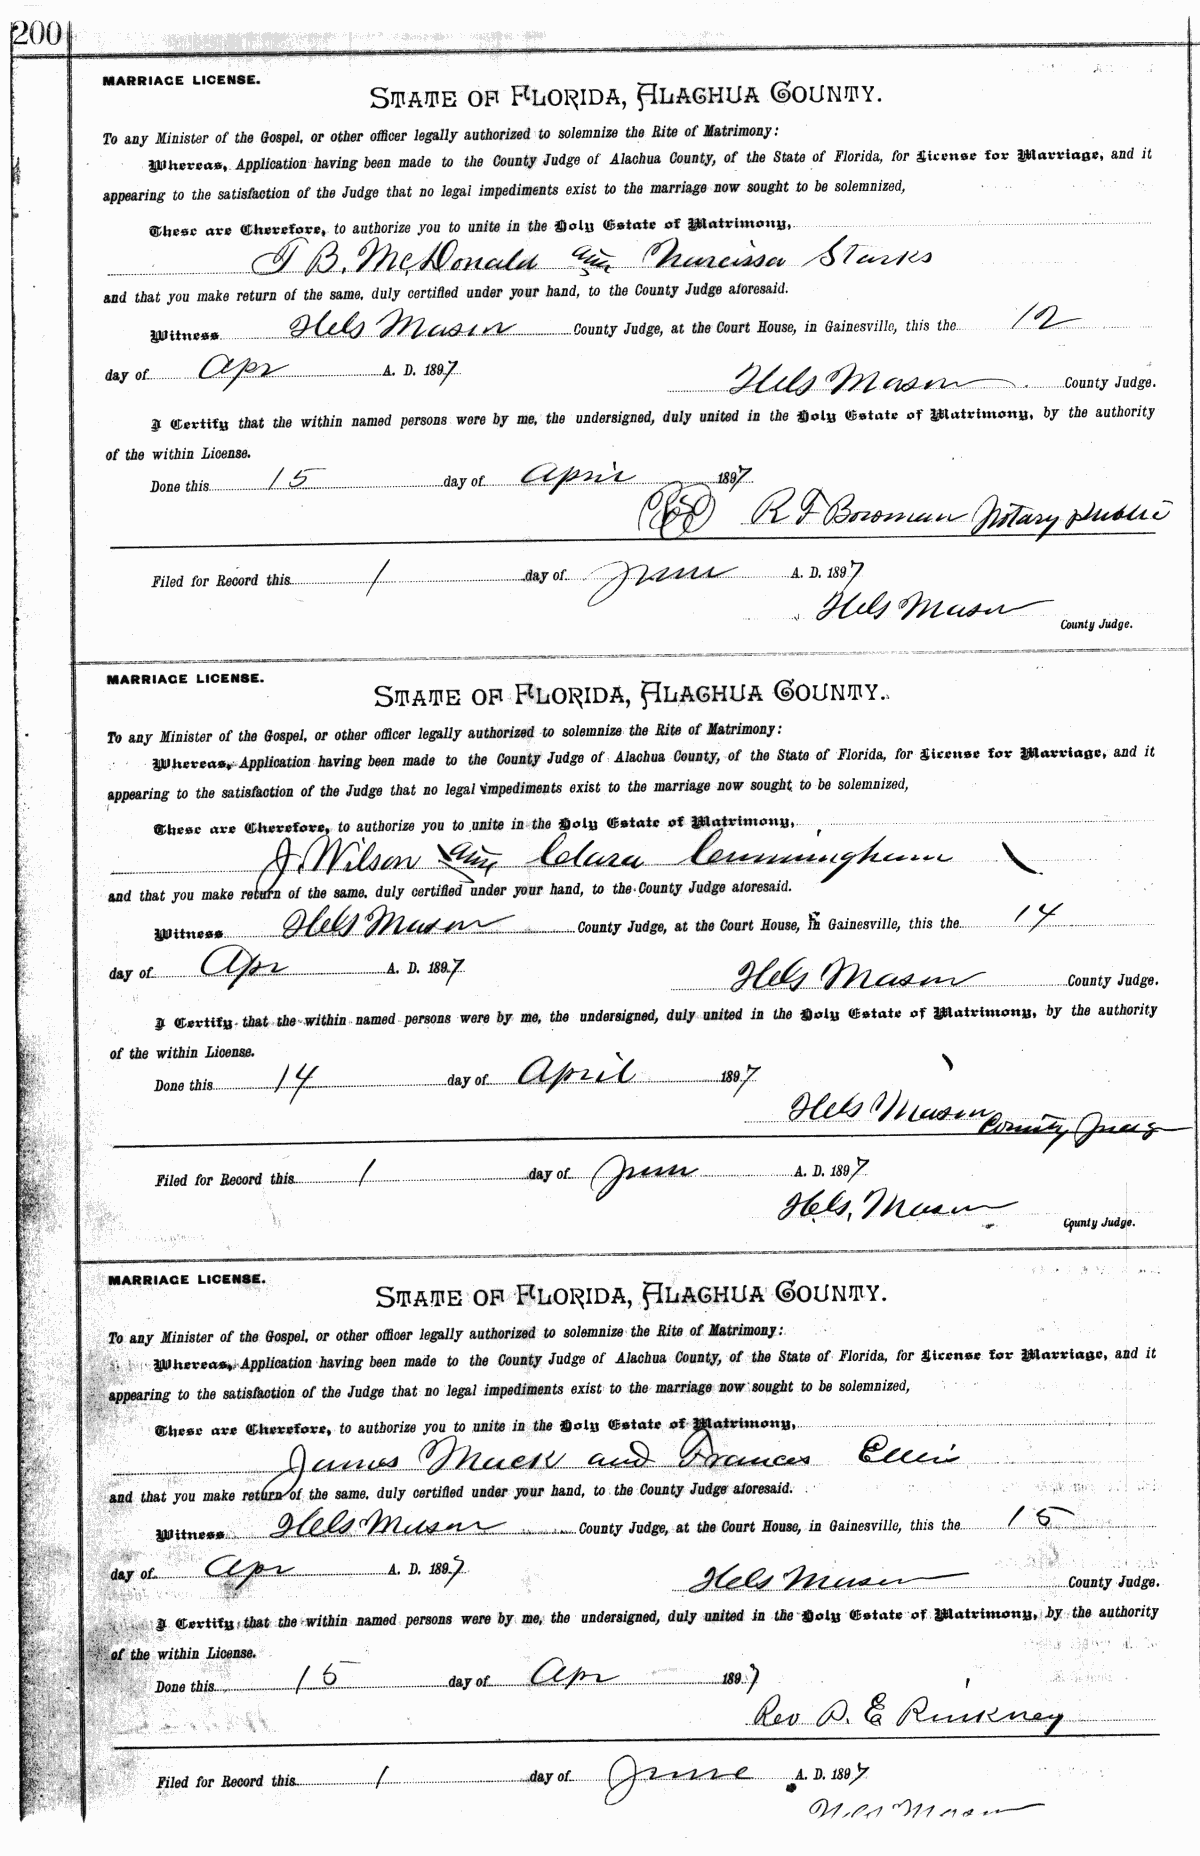 200
MARRIAGE LICENSE.
STATE OF FLORIDA, ALACHUA COUNTY.
To any Minister of the Gospel, or other officer legally authorized to solemnize the Rite of Matrimony:
Whereas, Application having been made to the County Judge of Alachua County, of the State of Florida, for License for Marriage, and it
appearing to the satisfaction of the Judge that no legal impediments exist to the marriage now sought to be solemnized,
These are Therefore, to authorize you to unite in the Holy Estate of Matrimony,
T B. McDonald and Narcissa Starks
and that you make return of the same, duly certified under your hand, to the County Judge aforesaid.
Witness Hels Mason County Judge, at the Court House, in Gainesville, this the 12
day of Apr A. D. 1897 Hels Mason County Judge.
I Certify that the within named persons were by me, the undersigned, duly united in the Holy Estate of Matrimony, by the authority
of the within License.
Done this 15 day of April 1897
R F Bowman Notary Public
Filed for Record this 1 day of June A. D. 1897
Hels Mason
County Judge.
MARRIAGE LICENSE.
STATE OF FLORIDA, ALACHUA COUNTY.
To any Minister of the Gospel, or other officer legally authorized to solemnize the Rite of Matrimony:
Whereas, Application having been made to the County Judge of Alachua County, of the State of Florida, for License for Marriage, and it
appearing to the satisfaction of the Judge that no legal impediments exist to the marriage now sought to be solemnized,
These are Therefore, to authorize you to unite in the Holy Estate of Matrimony,
J. Wilson and Clara Cunningham
and that you make return of the same, duly certified under your hand, to the County Judge aforesaid.
Witness Hels Mason County Judge, at the Court House, in Gainesville, this the 14
day of Apr A. D. 1897 Hels Mason County Judge.
I Certify that the within named persons were by me, the undersigned, duly united in the Holy Estate of Matrimony, by the authority
of the within License.
Done this 14 day of April 1897
Hels Mason County Judge
Filed for Record this 1 day of June A. D. 1897
Hels, Mason
County Judge.
MARRIAGE LICENSE.
STATE OF FLORIDA, ALACHUA COUNTY.
To any Minister of the Gospel, or other officer legally authorized to solemnize the Rite of Matrimony:
Whereas, Application having been made to the County Judge of Alachua County, of the State of Florida, for License for Marriage, and it
appearing to the satisfaction of the Judge that no legal impediments exist to the marriage now sought to be solemnized,
These are Therefore, to authorize you to unite in the Holy Estate of Matrimony,
James Mack and Frances Ellis
and that you make return of the same, duly certified under your hand, to the County Judge aforesaid.
Witness Hels Mason County Judge, at the Court House, in Gainesville, this the 15
day of Apr A. D. 1897 Hels Mason County Judge.
I Certify that the within named persons were by me, the undersigned, duly united in the Holy Estate of Matrimony, by the authority
of the within License.
Done this 15 day of Apr 1897
Rev D. E Pinkney
Filed for Record this 1 day of June A. D. 1897
Hels Mason